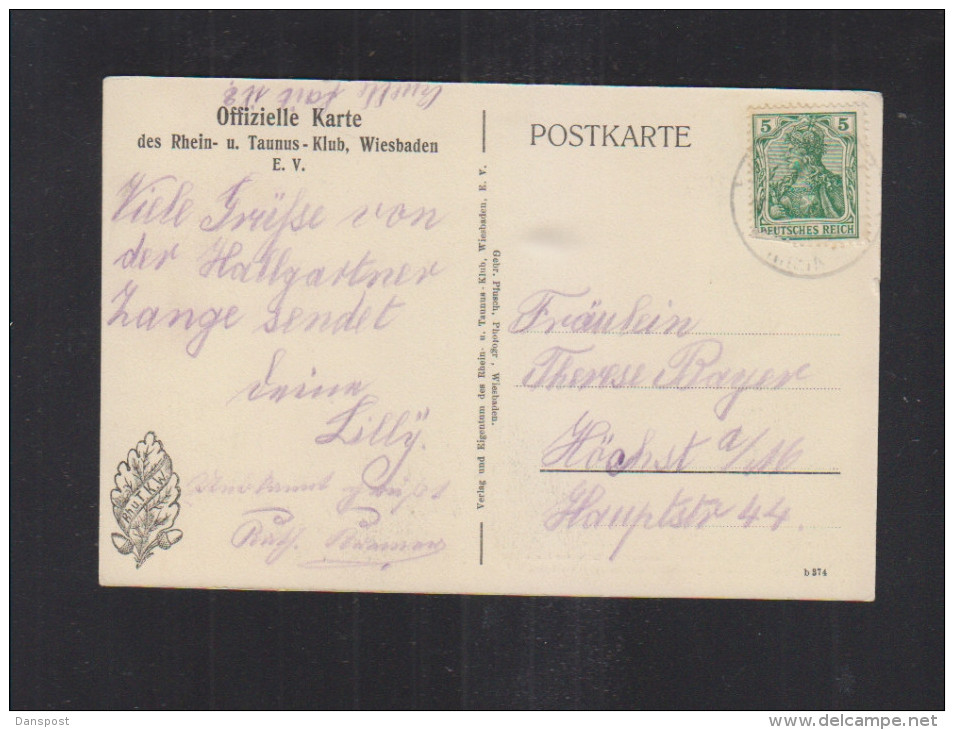 Offizielle Karte
des Rhein- u. Taunus-Klub, Wiesbaden
E. V.
Viele Grüße von
der Hallgartner
Zange sendet
Deine
Lilly.
Unbekannt grüßt
Kath.
Rh.u.T.K.W.
Verlag und Eigentum des Rhein- u. Taunus-Klub, Wiesbaden, E. V.
Gebr. Pfusch, Photogr., Wiesbaden.
POSTKARTE
5 5
DEUTSCHES REICH
Fräulein
Therese Bayer
Höchst a/M
Hauptstr 44.
b 374
Danspost
www.delcampe.net